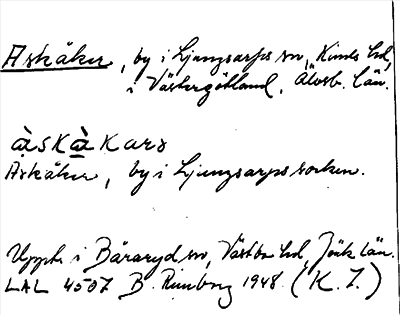 Askåker, by i Ljungsarps sn, Kinds hd,
i Västergötland, Älvsb. län.
àskàkars
Askåker, by i Ljungsarps socken.
Uppt. i Båraryd sn, Västbo hd, Jönk län.
LAL 4507 B. Rimborg 1948. (K. J.)